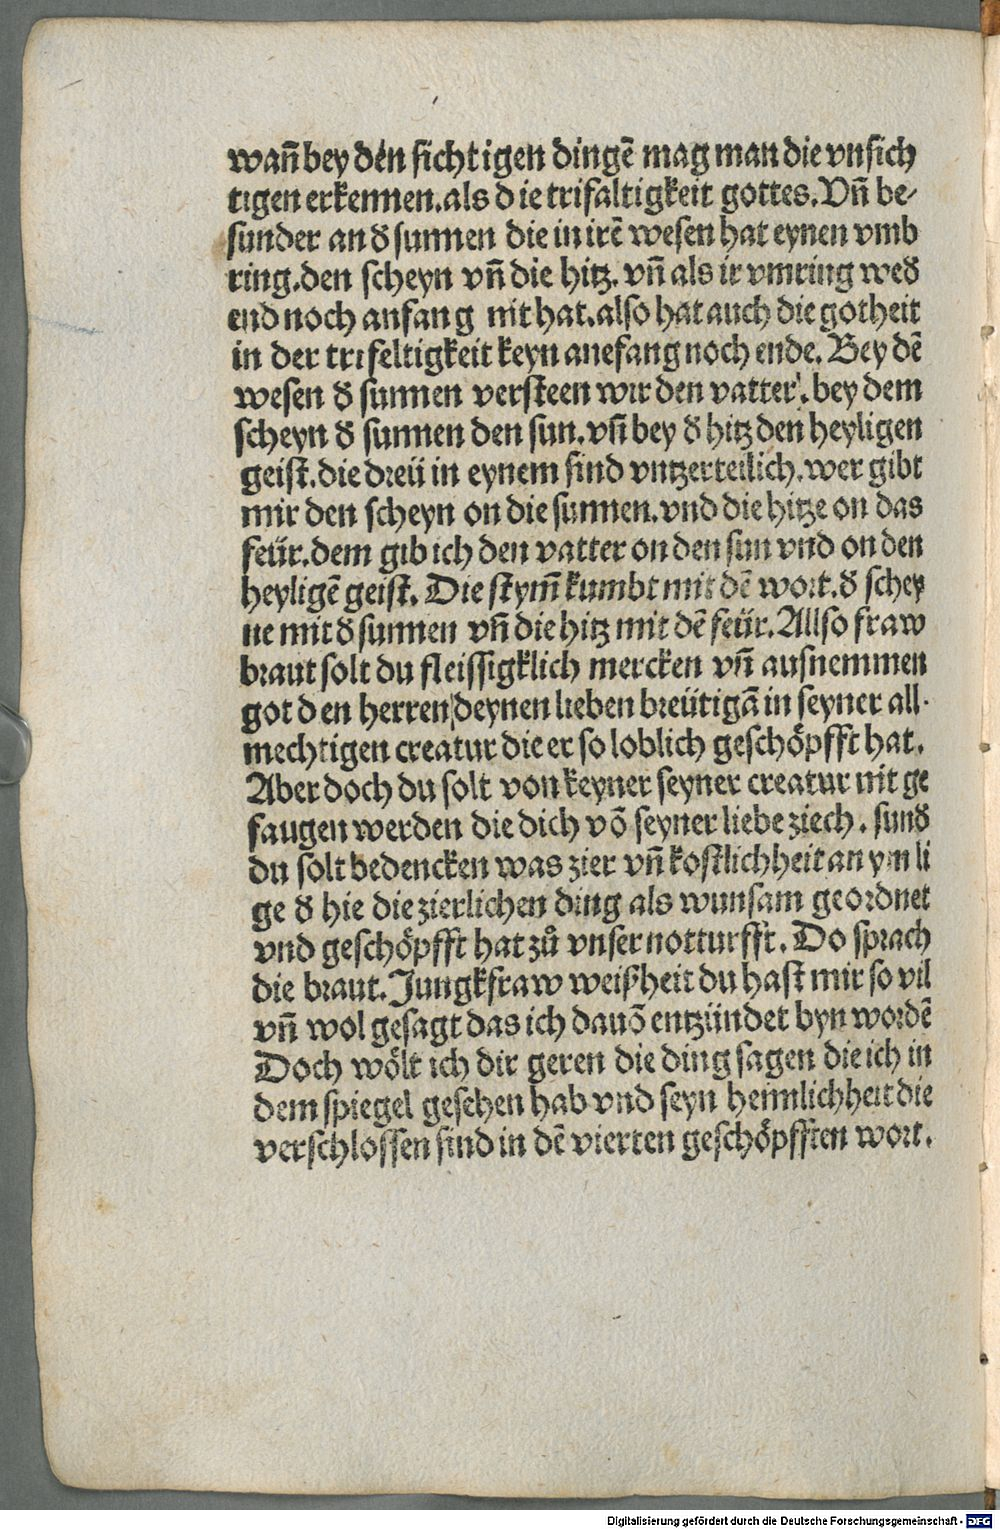 wañ bey den sichtigen dingē mag man die vnsich
tigen erkennen. als die trifaltigkeit gottes. Vñ be⸗
sunder an d̕ sunnen die in irē wesen hat eynen vmb
ring. den scheyn vñ die hitz. vñ als ir vmring wed̕
end noch anfang nit hat. also hat auch die gotheit
in der trifeltigkeit keyn anefang noch ende. Bey dē
wesen d̕ sunnen versteen wir den vatter. bey dem
scheyn d̕ sunnen den sun. vñ bey d̕ hitz den heyligen
geist. die dreü in eynem sind vntzerteilich. wer gibt
mir den scheyn on die sunnen. vnd die hitze on das
feür. dem gib ich den vatter on den sun vnd on den
heyligē geist. Die stym̄ kumbt mit dē wort. d̕ schey
ne mit d̕ sunnen vñ die hitz mit dē feür. Allso fraw
braut solt du fleissigklich mercken vñ ausnemmen
got den herren deynen lieben breütigā in seyner all⸗
mechtigen creatur die er so loblich geschöpfft hat.
Aber doch du solt von keyner seyner creatur nit ge
faugen werden die dich vō seyner liebe ziech. sund̕
du solt bedencken was zier vñ kostlichheit an ym li
ge d̕ hie die zierlichen ding als wunsam geordnet
vnd geschöpfft hat zů vnser notturfft. Do sprach
die braut. Jungkfraw weißheit du hast mir so vil
vñ wol gesagt das ich dauō entzündet byn wordē
Doch wölt ich dir geren die ding sagen die ich in
dem spiegel gesehen hab vnd seyn heimlichheit die
verschlossen sind in dē vierten geschöpfften wort.
Digitalisierung gefördert durch die Deutsche Forschungsgemeinschaft - DFG